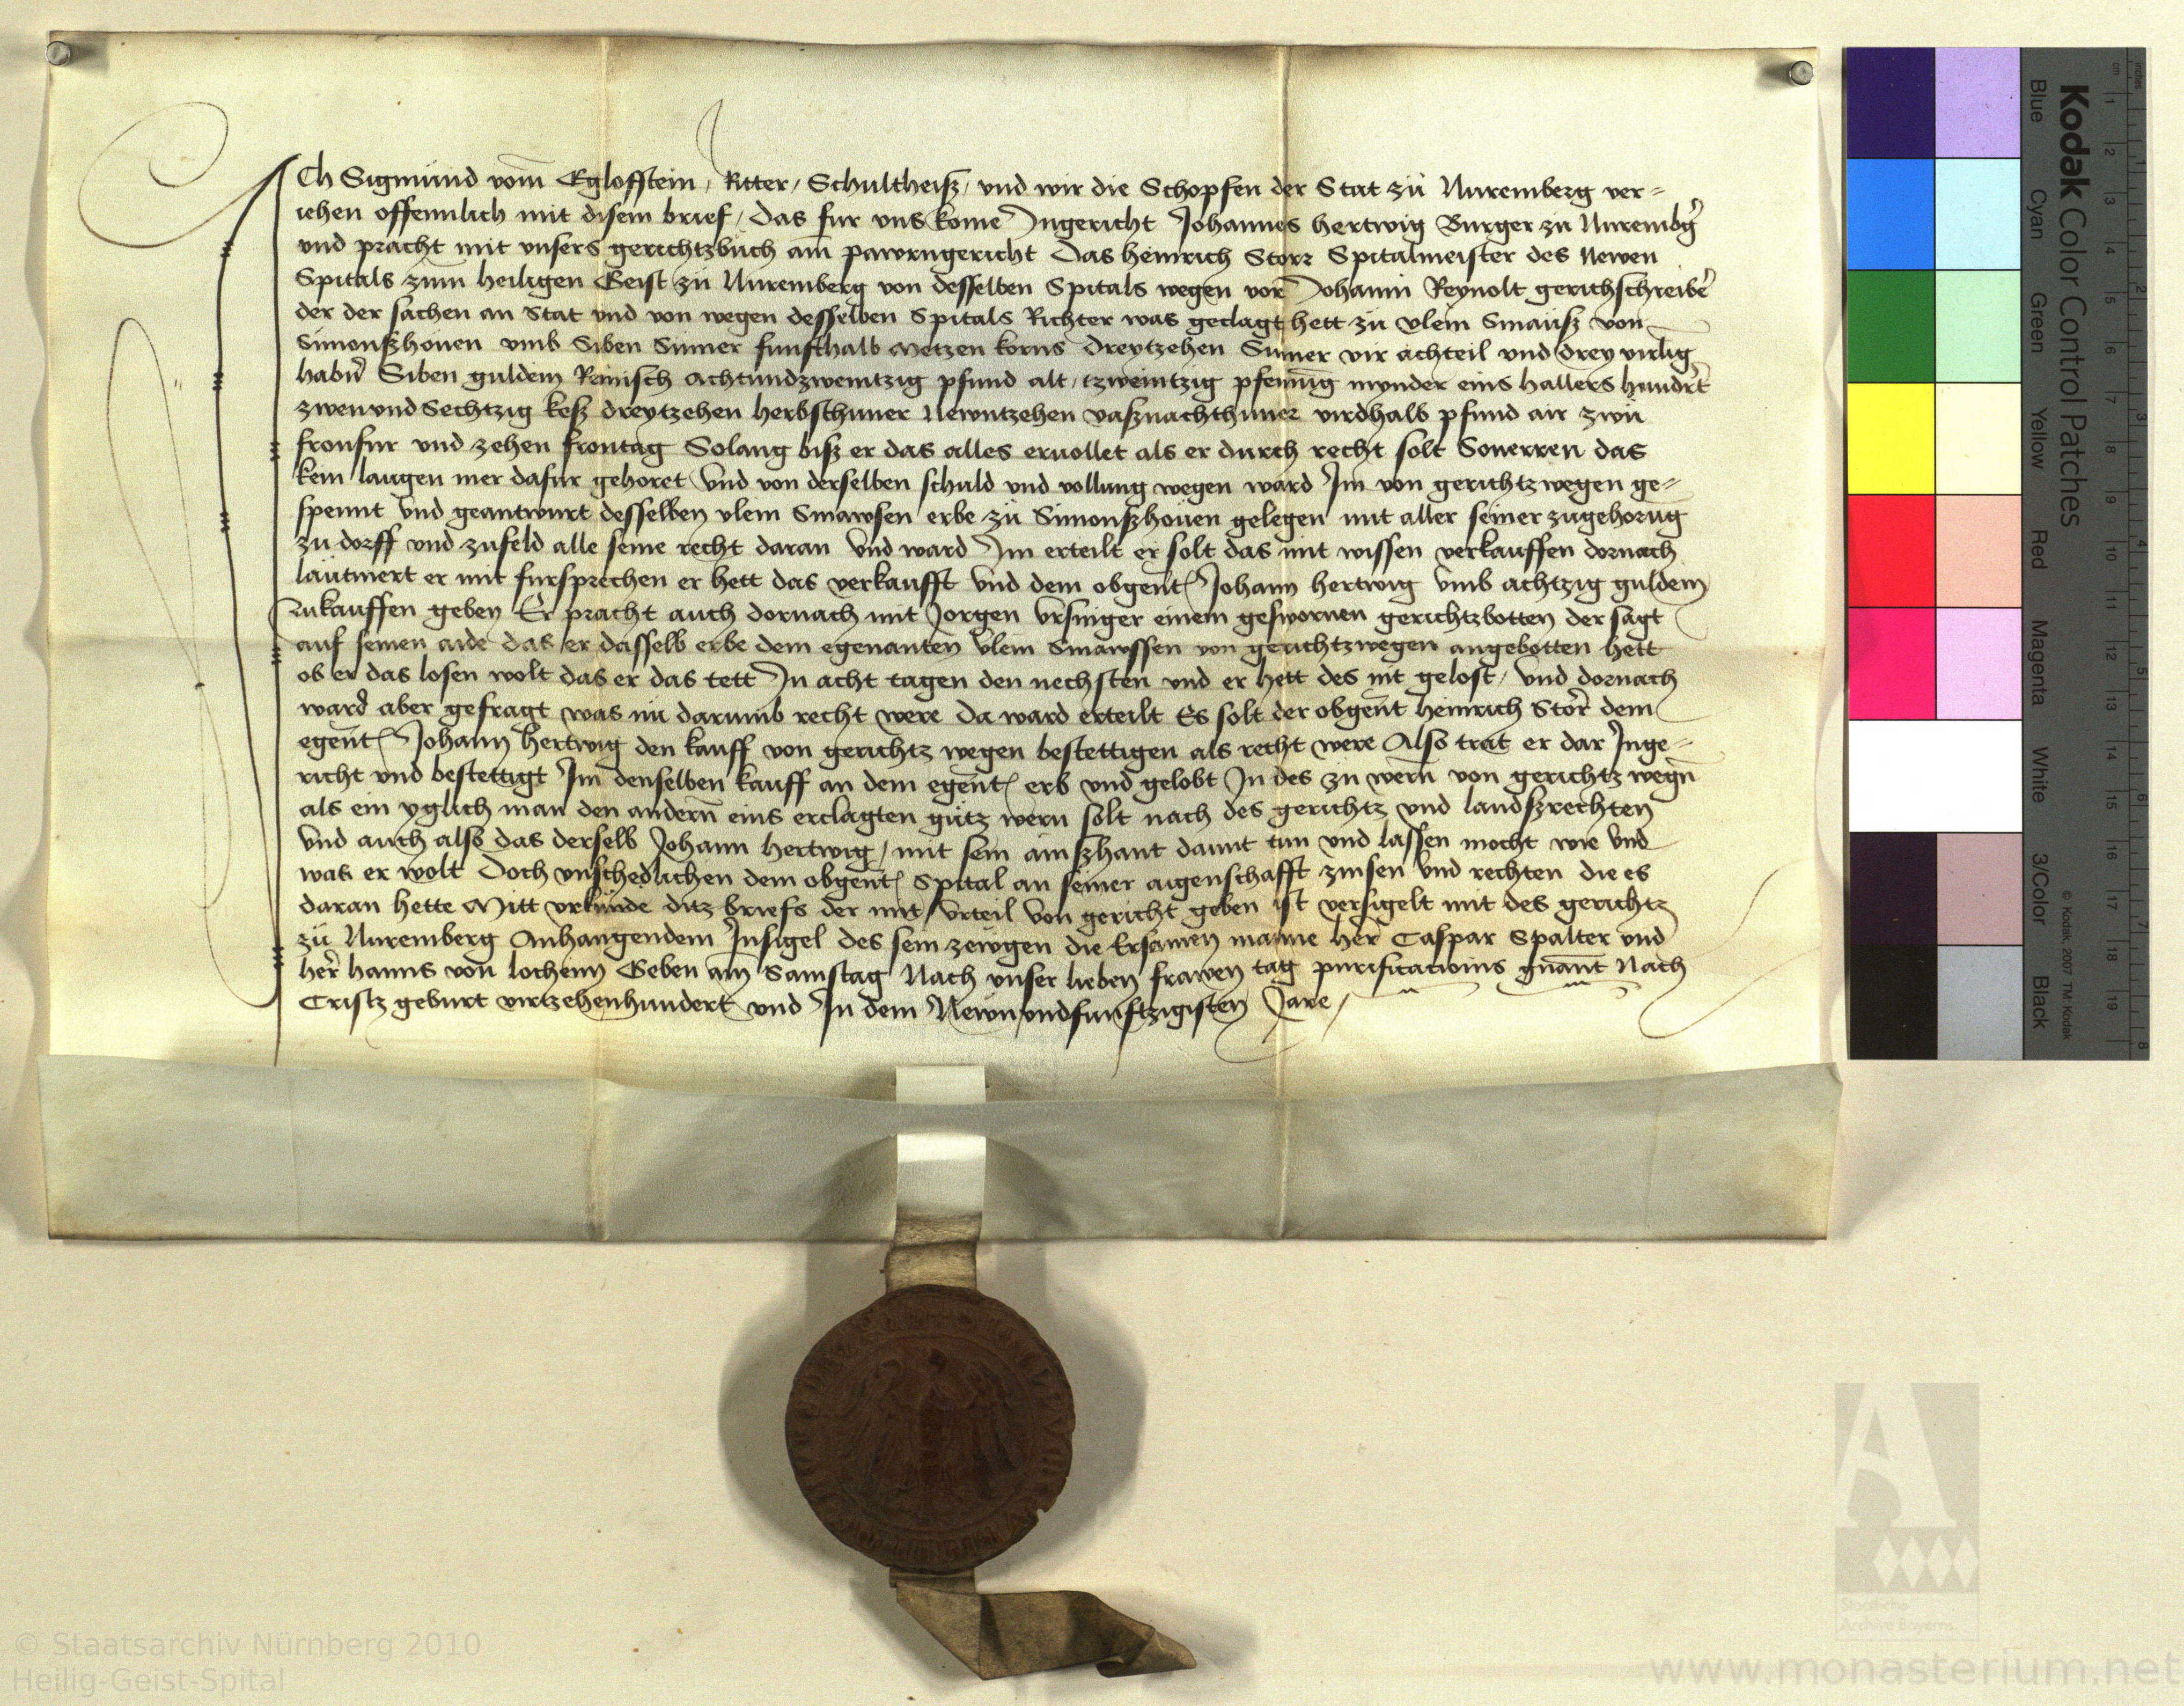 Ich Sigmund vom Eglofstein, Ritter, Schultheiß, und wir die Schopfen der Stat zu Nuremberg ver-
iehen offennlich mit disem brief, das fur uns kome Ingericht Johannes hertwig Burger zu Nurembg
und pracht mit unsers gerichtzbuch am pawrngericht Das heinrich Storr Spitalmeister des Newen
Spitals zum heiligen Geist zu Nuremberg von desselben Spitals wegen vor Johann Reynolt gerichschreiber
der der sachen an Stat und von wegen desselben Spitals Richter was geclagt hett zu vlein Smauß von
Simonßhouen umb Siben Sumer funfthalb Metzen korns dreytzehen Sumer vir achteil und drey virlig
habern Siben guldem Reinisch achtundzweintzig pfund alt, tzweintzig pfennig mynder eins hallers hundrt
zwen und Sechtzig keß dreytzehen herbsthuner Newntzehen vaßnachthuner virdhalb pfund air zwu
fronfur und zehen frontag Solang biß er das alles eruollet als er durch recht solt Souerren das
kein laugen mer dafur gehoret Und von derselben schuld und vollung wegen ward Im von gerichtz wegen ge-
spennt Und geantwurt desselben vlein Smawsen erbe zu Simonßhouen gelegen mit aller seiner zugehorug
zu dorff und zufeld alle seine recht daran Und ward Im erteilt er solt das mit wissen verkauffen dornach
lautmert er mit fursprechen er hett das verkaufft Und dem obgent Johann hertwig Umb achtzig guldem
Zukauffen geben Er pracht auch dornach mit Jorgen Ursinger einem geswornen gerichtzbotten der sagt
auf seinen aide das er dasselb erbe dem egenanten vlein Smawssen von gerichtzwegen angebotten hett
ob er das losen wolt das er das tett In acht tagen den nechsten und er hett des nit gelost, Und dornach
ward aber gefragt was nu darumb recht were Da ward erteilt Es solt der obgent heinrich Storr dem
egent Johann hertwig den kauff von gerichtz wegen bestettigen als recht were Also trat er dar Inge-
richt und bestettigt Im denselben kauff an dem egent erb und gelobt In des zu wern von gerichtz wegn
als ein yglich man den andern eins erclagten gutz wern solt nach des gerichtz und landßrechten
Und auch also das derselb Johann hertwig, mit sein ainßhant damit tun und lassen mocht wie Und
was er wolt Doch unschedlichen dem obgent Spital an seiner aigenschafft zinsen Und rechten die es
daran hette Mitt urkunde ditz briefs der mit Urteil Von gericht geben ist versigelt mit des gerichtz
zu Nuremberg Anhangendem Insigel des sein zewgen die Ersamen manne her Caspar Spalter und
her hanns von lochem Geben am Samstag Nach unser lieben frawen tag purificationis gnant Nach
Cristz geburt virtzehenhundert und In dem Newnundfunftzigisten Jare,
Kodak Color Control Patches
Blue Cyan Green Yellow Red Magenta White 3/Color Black
© Kodak, 2007 TM: Kodak
cm 1 2 3 4 5 6 7 8 9 10 11 12 13 14 15 16 17 18 19
inches 1 2 3 4 5 6 7 8
Staatliche
Archive Bayerns
© Staatsarchiv Nürnberg 2010
Heilig-Geist-Spital
www.monasterium.net